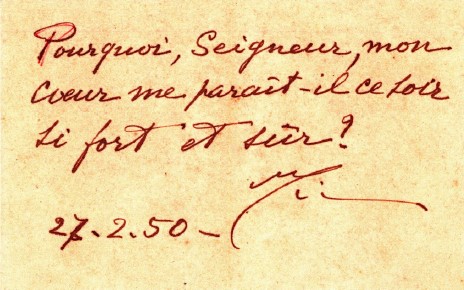 Pourquoi, Seigneur, mon
cœur me paraît-il ce soir
si fort et sûr?
27.2.50 -